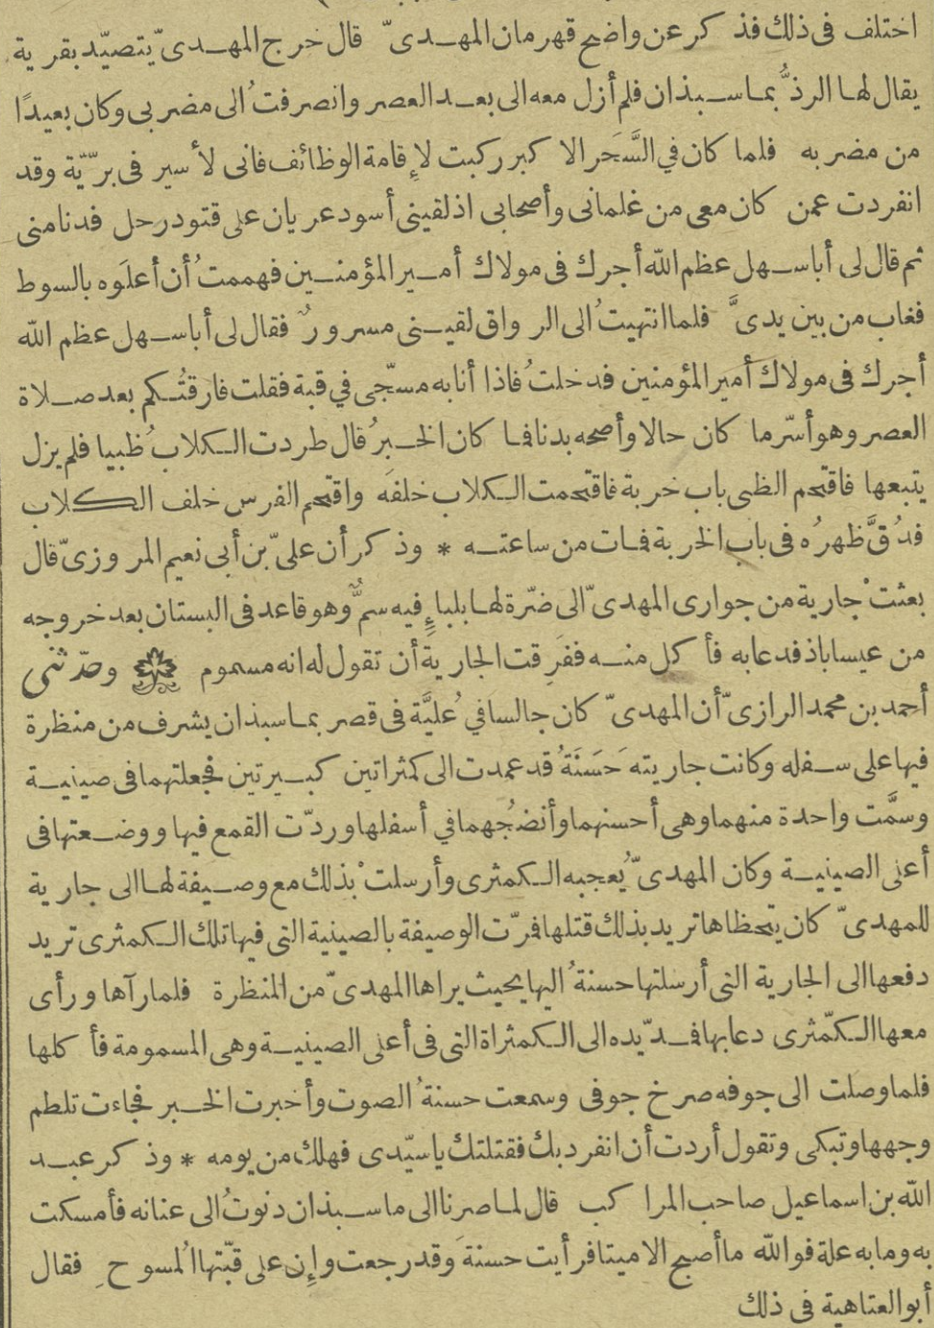 اختلف فى ذلك فذكر عن واضح قهرمان المهدىّ قال خرج المهدىّ يتصيّد بقرية
يقال لها الرذُّ بماسبذان فلم أزل معه الى بعد العصر وانصرفتُ الى مضربى وكان بعيدًا
من مضربه فلما كان في السَّحَر الاكبر ركبت لإقامة الوظائف فانى لأسير فى برّيّة وقد
انفردت عمن كان معى من غلمانى وأصحابى اذ لقينى أسود عريان على قتود رحل فدنا منى
ثم قال لى أبا سهل عظم الله أجرك فى مولاك أمير المؤمنين فهممتُ أن أعلَوه بالسوط
فغاب من بين يدىَّ فلما انتهيتُ الى الرواق لقينى مسرورٌ فقال لى أبا سهل عظم الله
أجرك فى مولاكَ أمير المؤمنين فدخلتُ فاذا أنا به مسجّى في قبة فقلت فارقتُكم بعد صلاة
العصر وهو أسّر ما كان حالا وأصحه بدنا فما كان الخبرُ قال طردت الكلابُ ظبيا فلم يزل
يتبعها فاقتحم الظبى باب خربة فاقتحمت الكلاب خلفَه واقتحم الفرس خلف الكلاب
فدُقَّ ظهرُه فى باب الخربة فمات من ساعته * وذكر أن علىّ بن أبى نعيم المروزىّ قال
بعثتْ جارية من جوارى المهدىّ الى ضرّة لها بلبإٍ فيه سمٌّ وهو قاعد فى البستان بعد خروجه
من عيساباذ فدعا به فأكل منه ففَرِقت الجارية أن تقول له انه مسموم وحدّثنى
أحمد بن محمد الرازىّ أن المهدىّ كان جالسا في عُليَّة فى قصر بماسبذان يشرف من منظرة
فيها على سفله وكانت جاريته حَسَنَةُ قد عمدت الى كمثراتين كبيرتين فجعلتهما فى صينية
وسمَّت واحدة منهما وهى أحسنهما وأنضجُهما في أسفلها وردّت القمع فيها ووضعتها فى
أعلى الصينية وكان المهدىّ يُعجبه الكمثرى وأرسلتْ بذلك مع وصيفة لها الى جارية
للمهدىّ كان يتحظاها تريد بذلك قتلها فمرّت الوصيفة بالصينية التى فيها تلك الكمثرى تريد
دفعها الى الجارية التى أرسلتها حسنةُ اليها بحيث يراها المهدىّ من المنظرة فلما رآها ورأى
معها الكمّثرى دعا بها فمدّ يده الى الكمثراة التى فى أعلى الصينية وهى المسمومة فأكلها
فلما وصلت الى جوفه صرخ جوفى وسمعت حسنةُ الصوت وأخبرت الخبر فجاءت تلطم
وجهها وتبكى وتقول أردت أن انفرد بك فقتلتك يا سيّدى فهلك من يومه * وذكر عبد
الله بن اسماعيل صاحب المراكب قال لما صرنا الى ماسبذان دنوتُ الى عنانه فأمسكت
به وما به علة فوالله ما أصبح الا ميتا فرأيت حسنةَ وقد رجعت وإن على قبّتها المُسوحِ فقال
أبو العتاهية فى ذلك